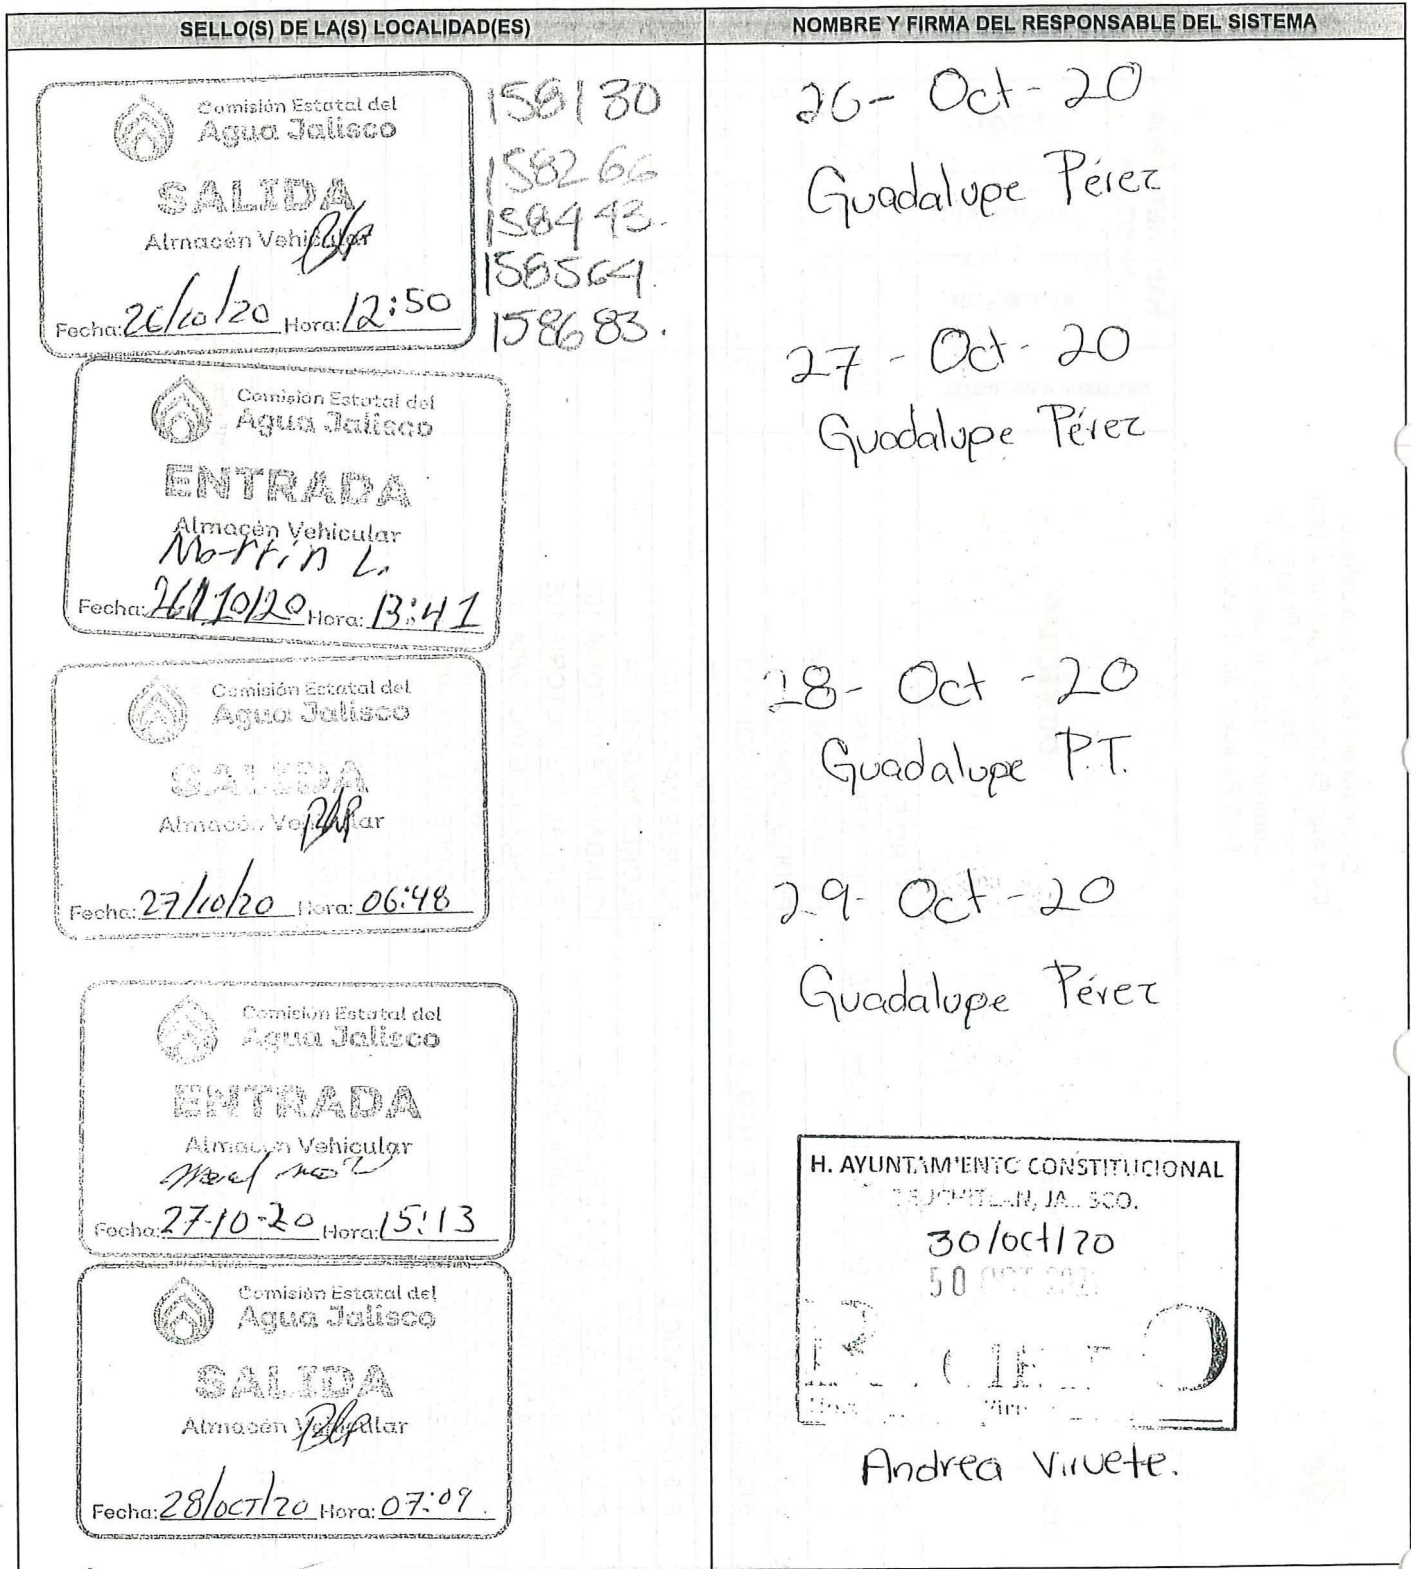 SELLO(S) DE LA(S) LOCALIDAD(ES)
Comisión Estatal del
Agua Jalisco
SALIDA
Almacén Vehicular
Fecha: 26/10/20 Hora: 12:50
158130
158266
158443.
158564.
158683.
Comisión Estatal del
Agua Jalisco
ENTRADA
Almacén Vehicular
Martín L.
Fecha: 26/10/20 Hora: 13:41
Comisión Estatal del
Agua Jalisco
SALIDA
Almacén Vehicular
Fecha: 27/10/20 Hora: 06:48
Comisión Estatal del
Agua Jalisco
ENTRADA
Almacén Vehicular
Fecha: 27-10-20 Hora: 15:13
Comisión Estatal del
Agua Jalisco
SALIDA
Almacén Vehicular
Fecha: 28/OCT/20 Hora: 07:09.
NOMBRE Y FIRMA DEL RESPONSABLE DEL SISTEMA
26- Oct - 20
Guadalupe Pérez
27 - Oct - 20
Guadalupe Pérez
28- Oct - 20
Guadalupe P.T.
29- Oct - 20
Guadalupe Pérez
H. AYUNTAMIENTO CONSTITUCIONAL
JALISCO.
30/oct/20
Andrea Viruete.